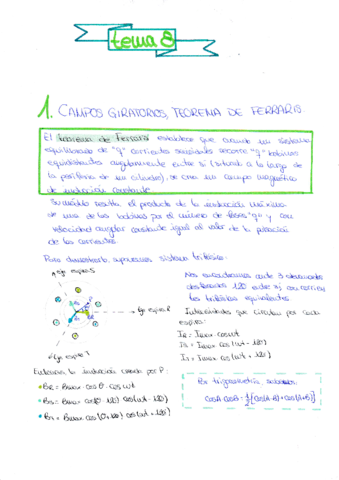 tema 8
1. CAMPOS GIRATORIOS, TEOREMA DE FERRARIS
El teorema de Ferraris establece que cuando un sistema
equilibrado de "q" corrientes recorre "q" bobinas
equidistantes angularmente entre sí (situadas a lo largo de
la periferia de un cilindro), se crea un campo magnético
de inducción constante.
Su módulo resulta el producto de la inducción máxima
de una de las bobinas por el número de fases "q" y con
velocidad angular constante igual al valor de la pulsación
de las corrientes.
Para demostrarlo, suponemos sistema trifásico:
Eje espira S
Eje espira R
Eje espira T
Nos encontramos ante 3 devanados
desfasados 120 entre sí, con corrientes
trifásicas equilibradas
Intensidades que circulan por cada
espira:
IR = Imax · cos wt
IS = Imax · cos (wt - 120)
IT = Imax · cos (wt + 120)
la inducción creada por P:
• BR = Bmax · cos θ · cos wt
• BS = Bmax · cos (θ - 120) · cos (wt - 120)
• BT = Bmax · cos (θ + 120) · cos (wt + 120)
Por trigonometría, sabemos:
cos A cos B = 1/2 [cos (A-B) + cos (A+B)]